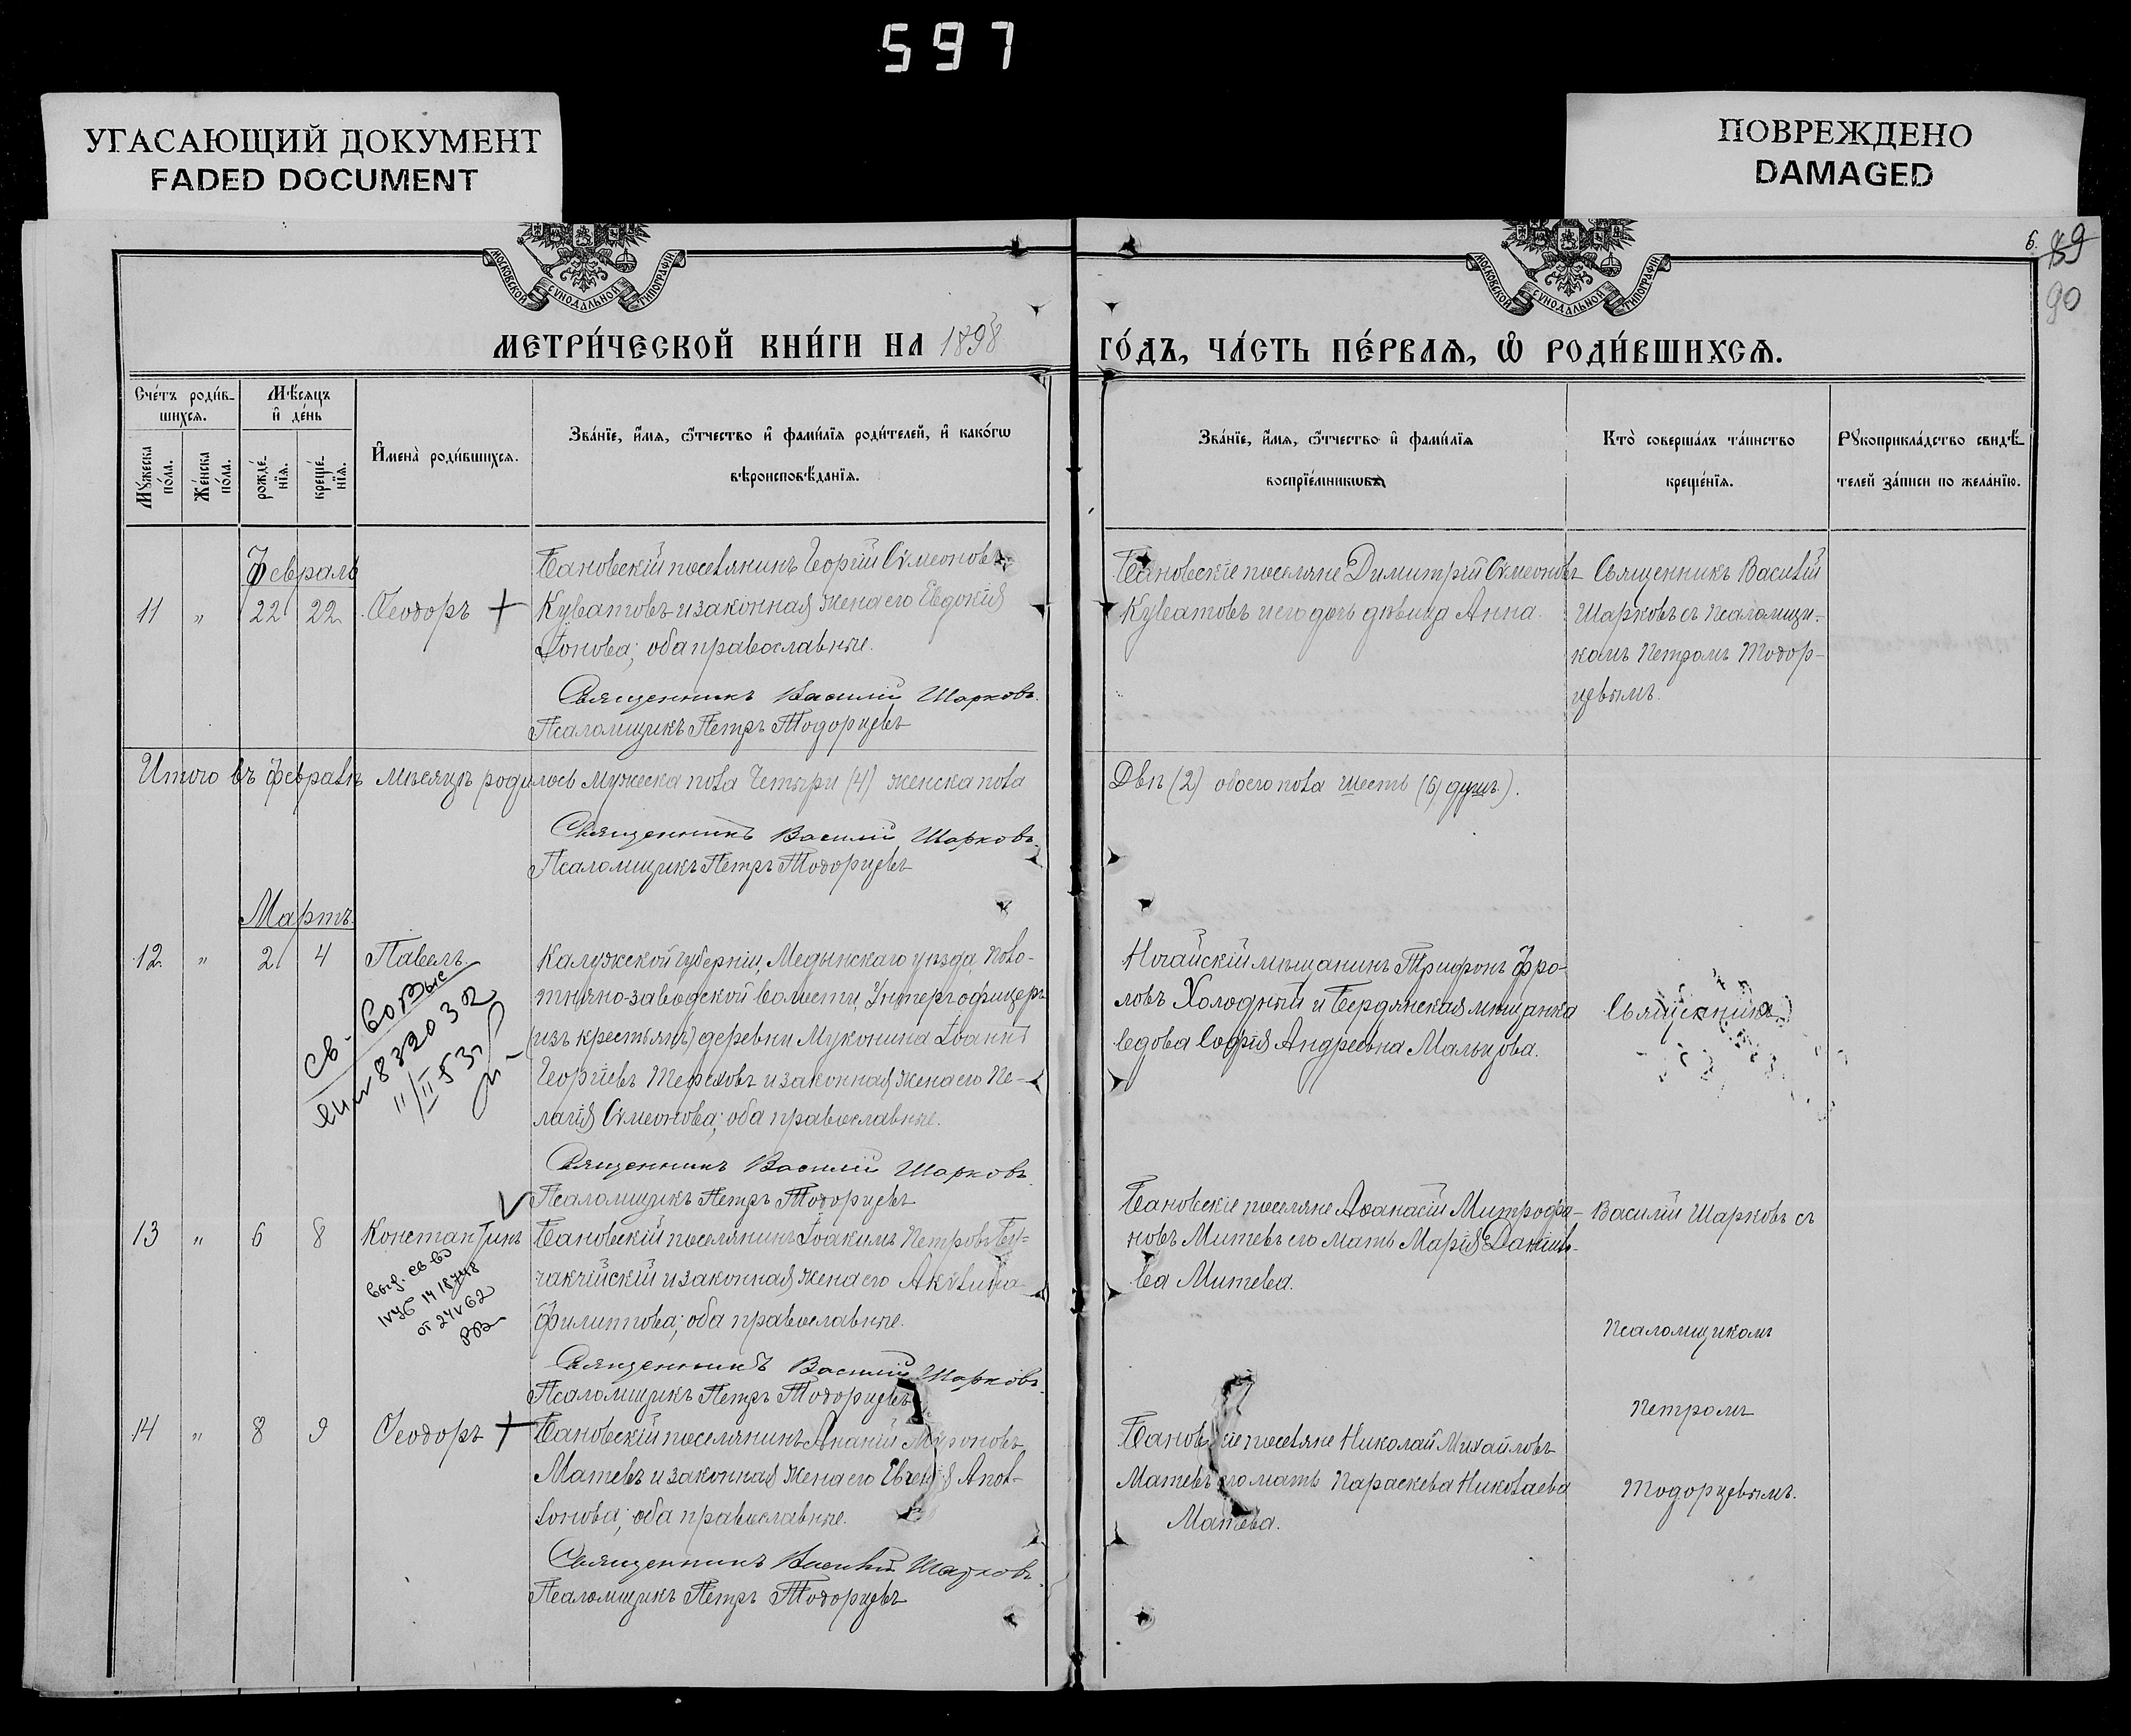 597
УГАСАЮЩИЙ ДОКУМЕНТ
FADED DOCUMENT
ПОВРЕЖДЕНО
DAMAGED
МОСКОВСКОЙ СѴНОДАЛЬНОЙ ТИПОГРАФІИ
МОСКОВСКОЙ СѴНОДАЛЬНОЙ ТИПОГРАФІИ
6. 89
90
МЕТРИ́ЧЕСКОЙ КНИ́ГИ НА 1898
ГО́ДЪ, ЧА́СТЬ ПЕ́РВАѦ, Ѡ҆ РОДИ́ВШИХСѦ.
Сче́тъ роди́в-
шихсѧ.
Мѣ́сяцъ
и҆ де́нь
Мꙋ́жеска
по́ла.
Же́нска
по́ла.
рожде́-
нїѧ.
креще́-
нїѧ.
И҆мена̀ роди́вшихсѧ.
Зва́нїе, и҆́мѧ, ѻ҆́тчество и҆ фами́лїѧ роди́телей, и҆ како́гѡ
вѣроисповѣ́данїѧ.
Зва́нїе, и҆́мѧ, ѻ҆́тчество и҆ фами́лїѧ
воспрїе́мникѡвъ
Кто̀ соверша́лъ та́инство
креще́нїѧ.
Рꙋкоприкла́дство свидѣ́-
телей за́писи по жела́нїю.
Февраль
11 " 22 22 Ѳеодоръ +
Бановскій поселянинъ Георгій Сѵмеоновъ
Куватовъ и законная жена его Евдокія
Іонова; оба православные.
Священникъ Василій Шарковъ.
Псаломщикъ Петръ Тодорцевъ
Бановскіе поселяне Димитрій Сѵмеоновъ
Куватовъ и его дочь дѣвица Анна.
Священникъ Василій
Шарковъ съ псаломщи-
комъ Петромъ Тодор-
цевымъ.
Итого въ февралѣ мѣсяцѣ родилось мужеска пола четыри (4) женска пола
Двѣ (2) обоего пола шесть (6) душъ).
Священникъ Василій Шарковъ.
Псаломщикъ Петръ Тодорцевъ
Мартъ.
12. " 2 4 Павелъ.
Калужской губерніи, Медынскаго уѣзда, Поло-
тняно-заводской волости, Унтеръ офицеръ
(изъ крестьянъ) деревни Муконина Іоаннъ
Георгіевъ Тереховъ и законная жена его Пе-
лагія Сѵмеонова; оба православные.
Священникъ Василій Шарковъ.
Псаломщикъ Петръ Тодорцевъ
Ногайскій мѣщанинъ Трифонъ Фро-
ловъ Холодный и Бердянская мѣщанка
вдова Софія Андреевна Мальцова.
Священникъ
832032
13 " 6 8 Константинъ
Бановскій поселянинъ Іоакимъ Петровъ Бу-
чакчійскій и законная жена его Акѵлина
Филиппова; оба православные.
Священникъ Василій Шарковъ.
Псаломщикъ Петръ Тодорцевъ
Бановскіе поселяне Аѳанасій Митрофа-
новъ Митевъ его мать Марія Данило-
ва Митева.
Василій Шарковъ съ
Псаломщикомъ
Петромъ
Тодорцевымъ.
14 " 8 9 Ѳеодоръ +
Бановскій поселянинъ Ананій Мѵроновъ
Матевъ и законная жена его Евгенія Апол-
лонова; оба православные.
Священникъ Василій Шарковъ.
Псаломщикъ Петръ Тодорцевъ
Бановскіе поселяне Николай Михайловъ
Матевъ его мать Параскева Николаева
Матева.